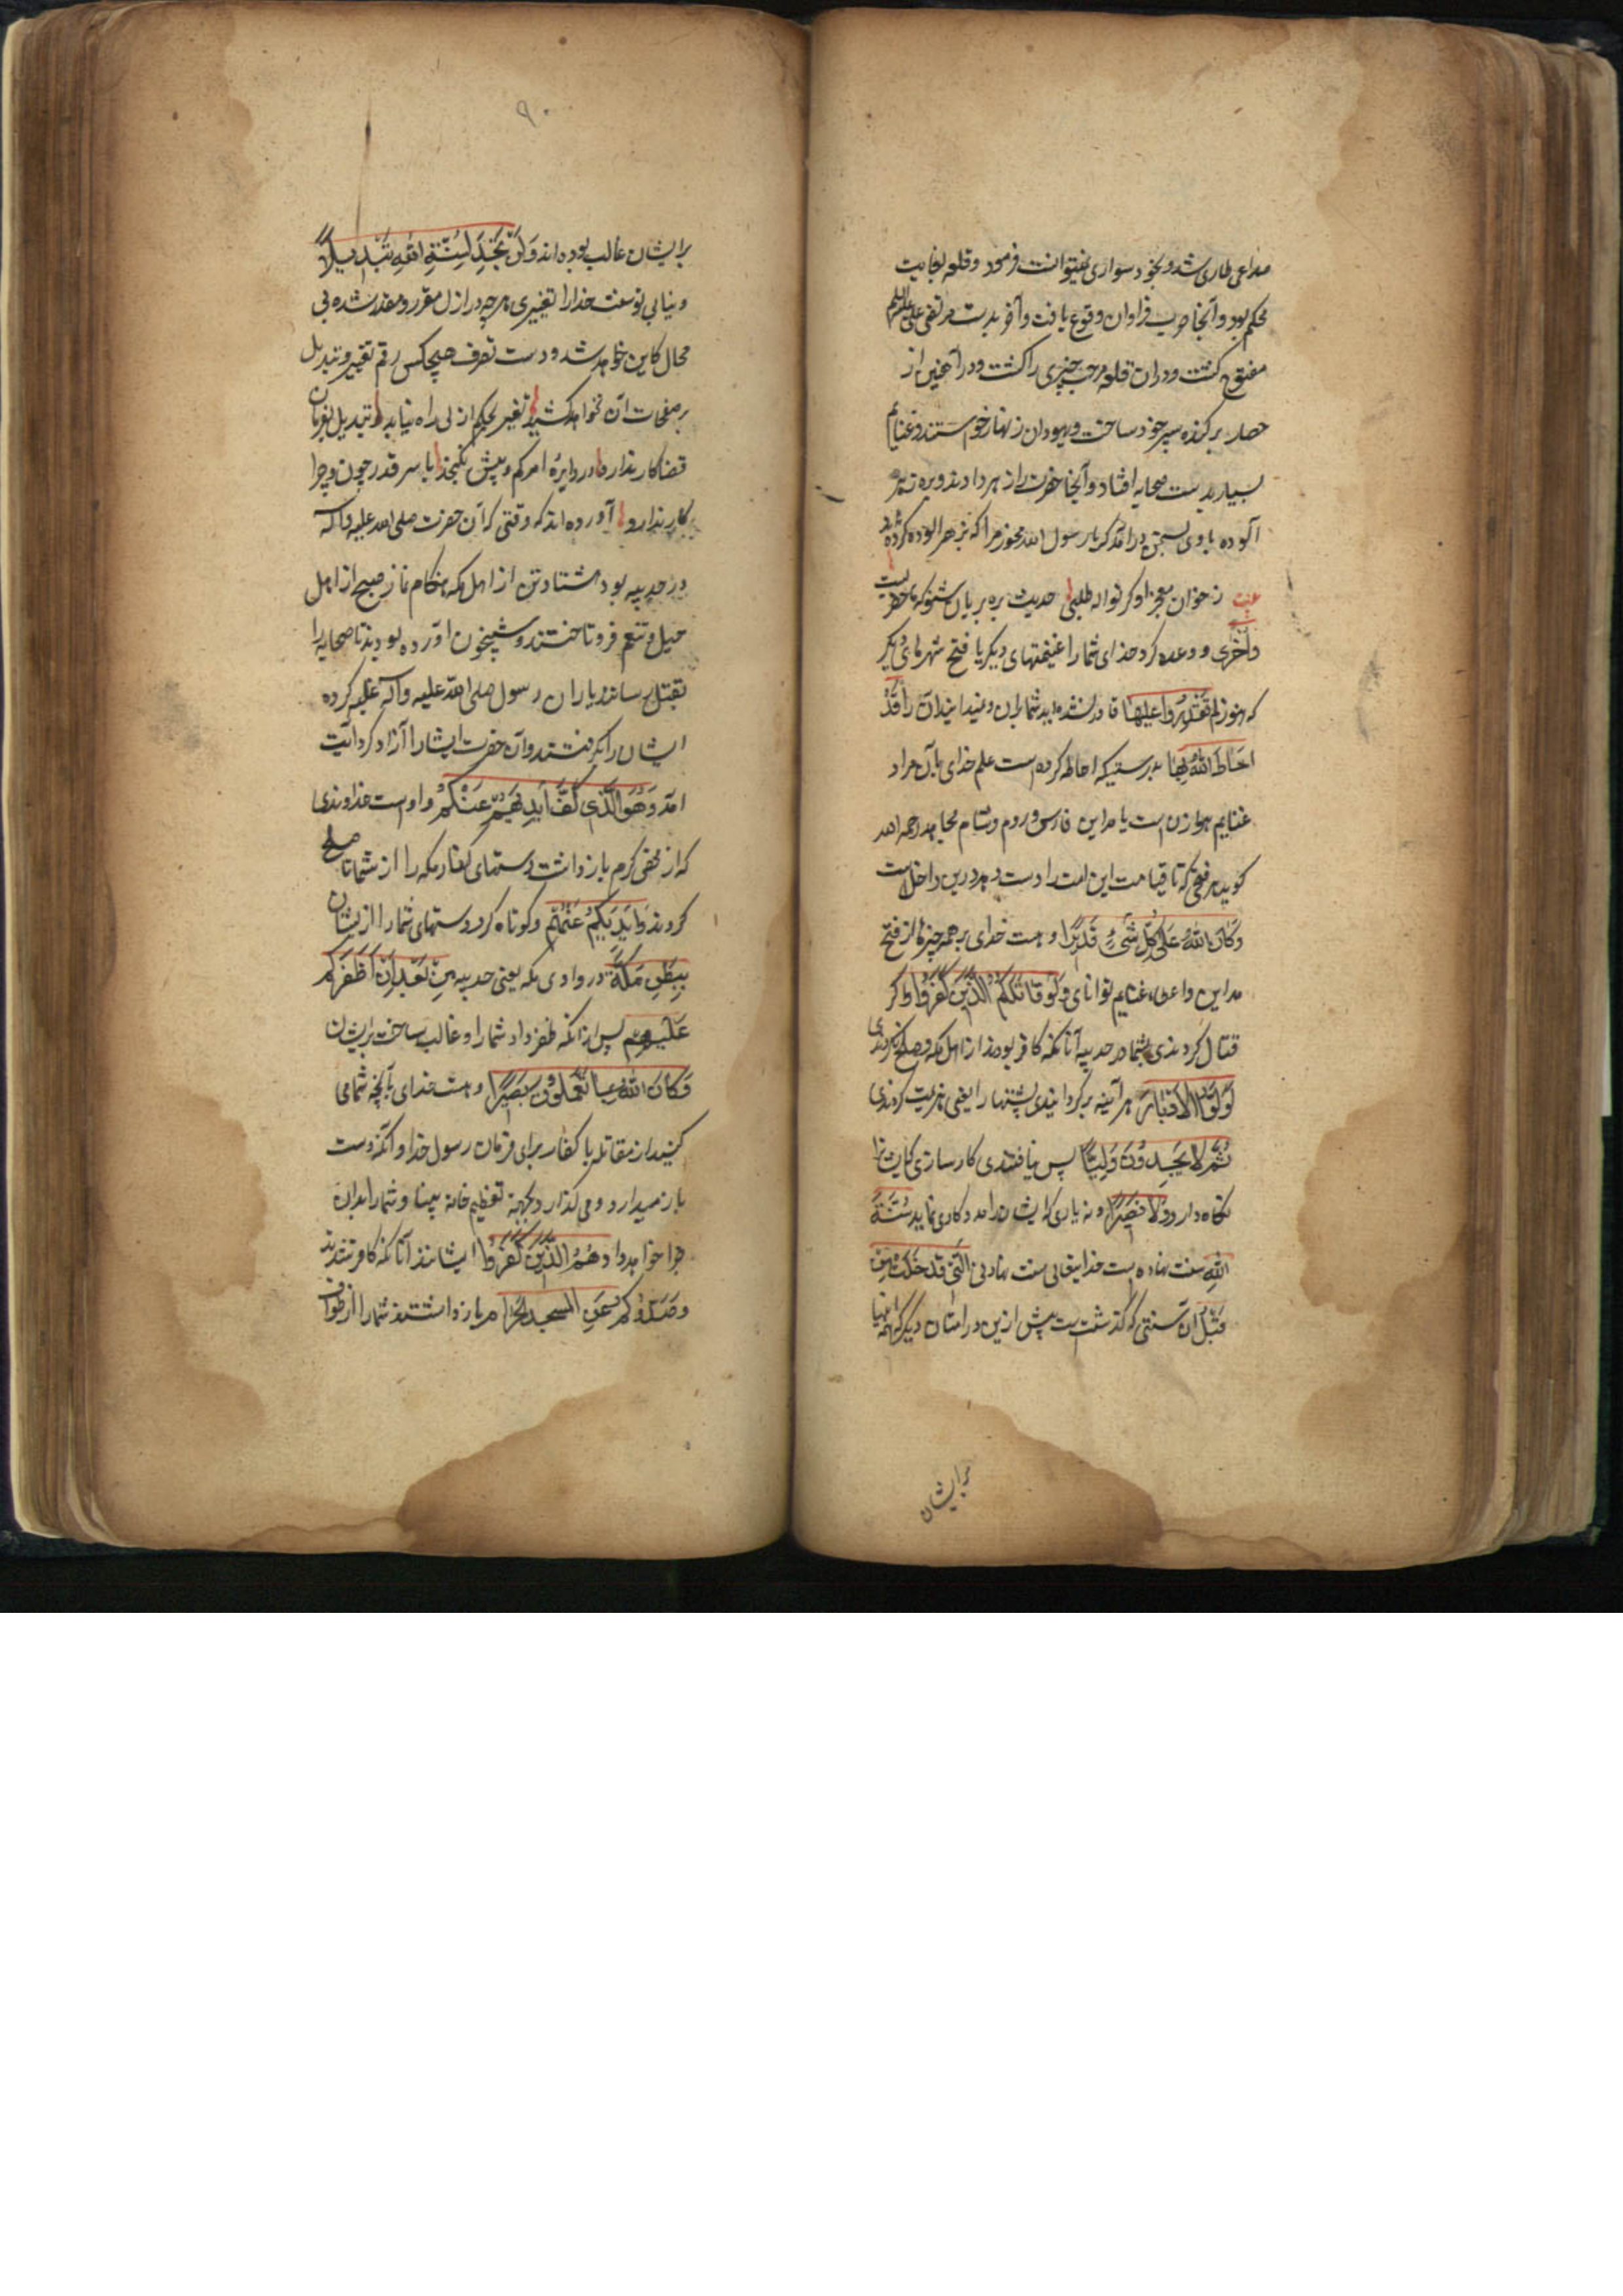 صداعی طاری شد و بخود سواری نمیتوانست فرمود و قلعه بغایت
محکم بود و آنجا حرب فراوان وقوع یافت و آخر بدست مرتضی علی علیه السلم
مفتوح گشت و دران قلعه مرحب خیبری را کشت و در آهنین از
حصار برکنده سپر خود ساخت و یهودان زنهار خواستند و غنایم
بسیار بدست صحابه افتاد و آنجا حضرت را زهر دادند و بره
آلوده با وی بسخن درآمد که یا رسول الله مخور مرا که بزهر آلوده کرده اند
بیت ز خوان معجز او گر نواله طلبی حدیث بره بریان شنو که
و اخری و وعده کرد خدای شما را غنیمتهای دیگر یا فتح شهرهای دیگر
که هنوز لم تقدروا علیها قادر نشده اید شما بران و نمیدانید آن را قد
احاط الله بها بدرستیکه احاطه کرده است علم خدای بآن مراد
غنایم هوازن است یا مداین فارس و روم و شام مجاهد رحمه الله
گوید هر فتحی که تا قیامت این امت را دست دهد درین داخل است
وکان الله علی کل شیء قدیرا و هست خدای بر همه چیزها از فتح
مداین و اعطاء غنایم توانای ولو قاتلکم الذین کفروا و اگر
قتال کردندی بشما در حدیبیه آنانکه کافر بودند از اهل مکه و صلح نکردندی
لولوا الادبار هر آئینه برگردانیدندی پشتها را یعنی هزیمت کردندی
ثم لا یجدون ولیا پس نیافتندی کارسازی که ایشان را
نگاه دارد ولا نصیرا و نه یاری که ایشان را مددکاری نماید سنة
الله سنت نهاده است خدایتعالی سنت نهادنی التی قد خلت من
قبل آن سنتی که گذشته است پیش ازین در امتان دیگر که همه انبیا
برایشان
۹۰
برایشان غالب بوده اند ولن تجد لسنة الله تبدیلا
و نیابی تو سنت خدا را تغییری هر چه در ازل مقرر و مقدر شده بی
محال کاین خواهد شد و دست تصرف هیچکس رقم تغییر و تبدیل
بر صفحات آن نخواهد کشید تغییر بحکم ازلی راه نیابد تبدیل بفرمان
قضا کار ندارد در دایره امر کم و بیش نگنجد با سر قدر چون و چرا
کار ندارد آورده اند که وقتی که آن حضرت صلی الله علیه و آله
در حدیبیه بود هشتاد تن از اهل مکه هنگام نماز صبح از جبل
تنعیم فرو تاختند و شبیخون آورده بودند تا صحابه را
بقتل رسانند یاران رسول صلی الله علیه وآله غلبه کرده
ایشان را بگرفتند و آن حضرت ایشان را آزاد کرد آیت
آمد وهو الذی کف ایدیهم عنکم و اوست خداوندی
که از محض کرم باز داشت دستهای کفار مکه را از شما تا صلح
کردند وایدیکم عنهم و کوتاه کرد دستهای شما را از ایشان
ببطن مکة در وادی مکه یعنی حدیبیه من بعد ان اظفرکم
علیهم پس از آنکه ظفر داد شما را و غالب ساخت بر ایشان
وکان الله بما تعملون بصیرا و هست خدای بآنچه شما می
کنید از مقاتله با کفار برای فرمان رسول خدا و آنکه دست
باز میدارد و می گذارد بجهة تعظیم خانه بینا و شما را بدان
جزا خواهد داد هم الذین کفروا ایشانند آنانکه کافر شدند
وصدوکم عن المسجد الحرام و باز داشتند شما را از طواف